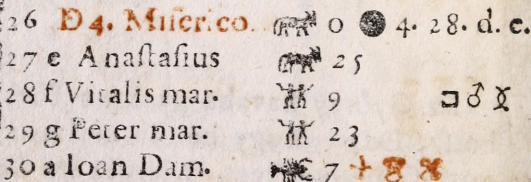 26 D 4. Miſerico. 0 ● 4. 28. d. e.
27 e Anaſtaſius 25
28 f Vitalis mar. 9 □ ♂
29 g Peter mar. 23
30 a Ioan Dam. 7